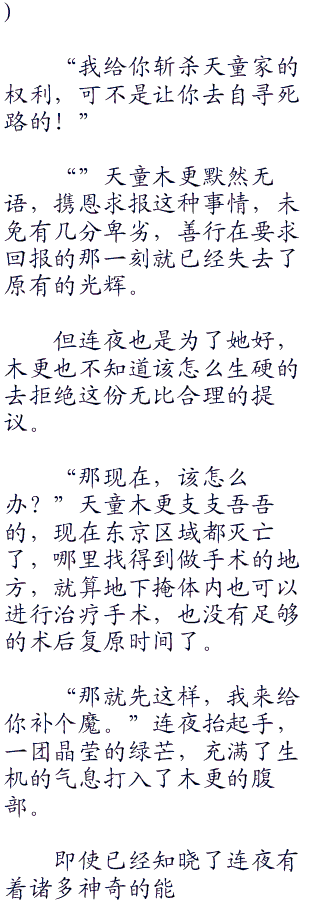 )
“我给你斩杀天童家的
权利，可不是让你去自寻死
路的！”
“”天童木更默然无
语，携恩求报这种事情，未
免有几分卑劣，善行在要求
回报的那一刻就已经失去了
原有的光辉。
但连夜也是为了她好，
木更也不知道该怎么生硬的
去拒绝这份无比合理的提
议。
“那现在，该怎么
办？”天童木更支支吾吾
的，现在东京区域都灭亡
了，哪里找得到做手术的地
方，就算地下掩体内也可以
进行治疗手术，也没有足够
的术后复原时间了。
“那就先这样，我来给
你补个魔。”连夜抬起手，
一团晶莹的绿芒，充满了生
机的气息打入了木更的腹
部。
即使已经知晓了连夜有
着诸多神奇的能